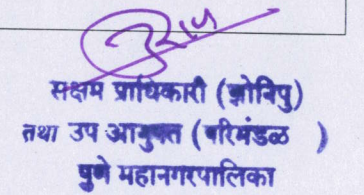 सक्षम प्राधिकारी (झोनिपु)
तथा उप आयुक्त (परिमंडळ )
पुणे महानगरपालिका